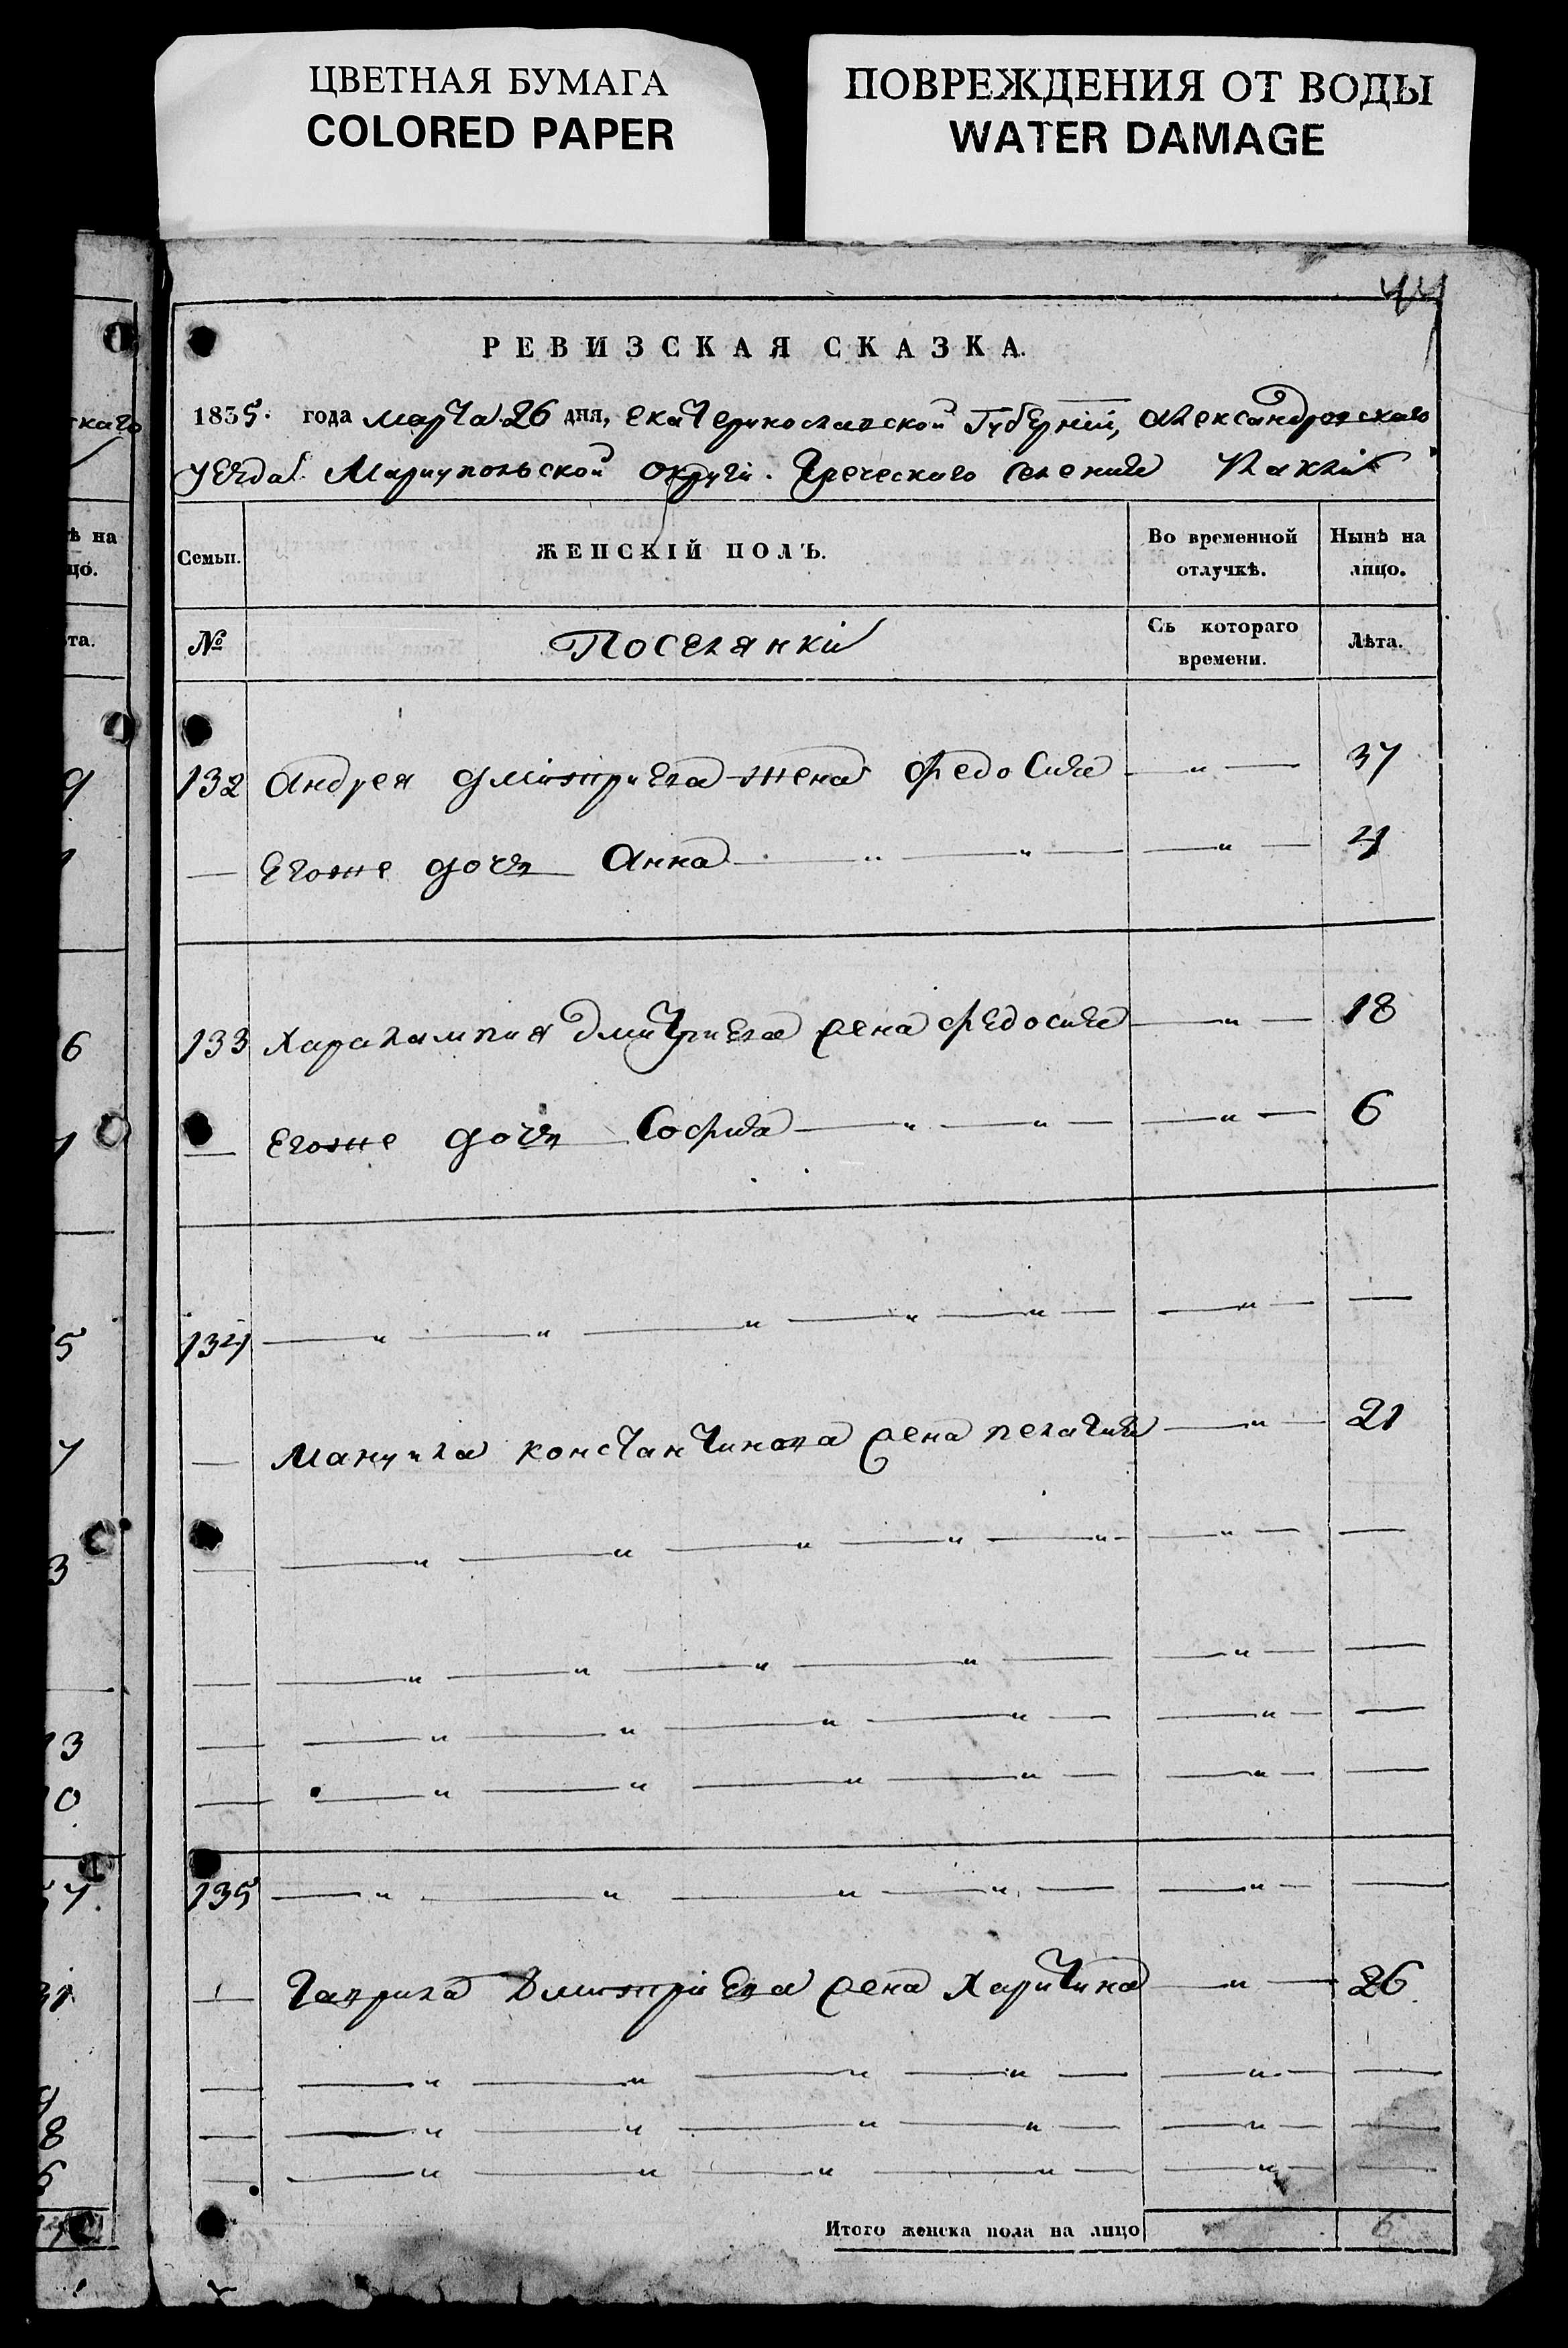 ЦВЕТНАЯ БУМАГА
COLORED PAPER
ПОВРЕЖДЕНИЯ ОТ ВОДЫ
WATER DAMAGE
44
РЕВИЗСКАЯ СКАЗКА.
1835. года марта 26 дня, екатеринославской Губерніи, александровскаго
уезда Мариупольской округи. Греческаго селения
Семьи. ЖЕНСКІЙ ПОЛЪ. Во временной отлучкѣ. Нынѣ на лицо.
№ Поселянки Съ котораго времени. Лѣта.
132 андрея дмитриева жена федосия — „ — 37
— Егоже дочь Анна — „ — „ — — „ — 4
133 Харалампия дмитриева жена федосия — „ — 18
— Егоже дочь София — „ — „ — — „ — 6
134 — „ — „ — „ — „ — „ — — „ — —
— Мануила константинова жена пелагия — „ — 21
— — „ — „ — „ — „ — „ — — „ — —
— — „ — „ — „ — „ — — „ — —
— — „ — „ — „ — „ — — „ — —
— — „ — „ — „ — „ — — „ — —
135 — „ — „ — „ — „ — — „ — —
— Гаврила Дмитриева жена Харитина — „ — 26
— — „ — „ — „ — „ — — „ — —
— — „ — „ — „ — „ — — „ — —
— — „ — „ — „ — „ — — „ — —
Итого женска пола на лицо 6